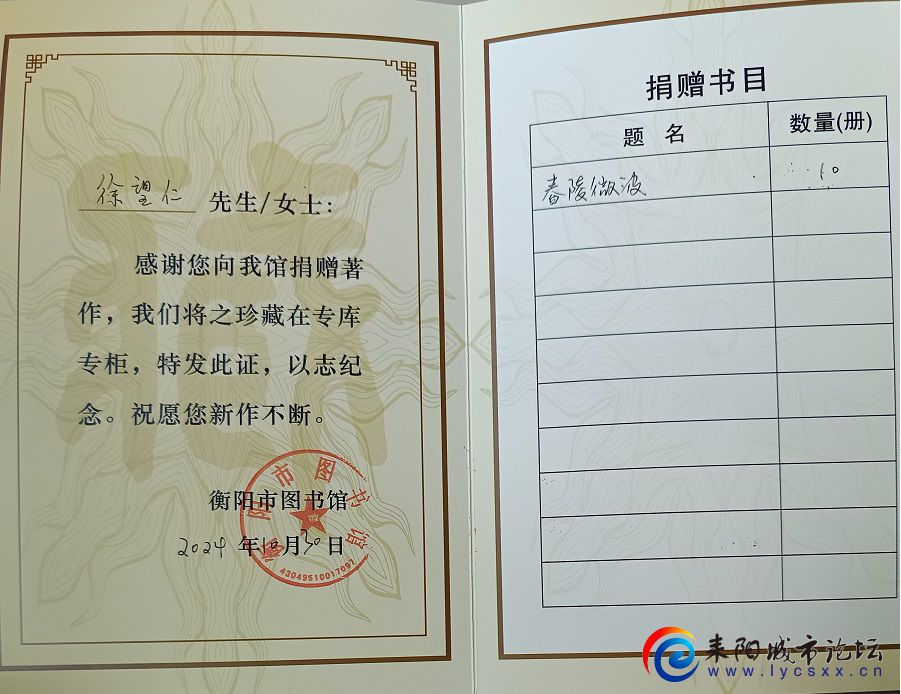 徐望仁 先生/女士：
感谢您向我馆捐赠著
作，我们将之珍藏在专库
专柜，特发此证，以志纪
念。祝愿您新作不断。
衡阳市图书馆
2024 年10月30日
衡阳市图书馆
43049510017097
捐赠书目
题 名 数量(册)
舂陵微波 10
耒阳城市论坛
www.lycsxx.cn